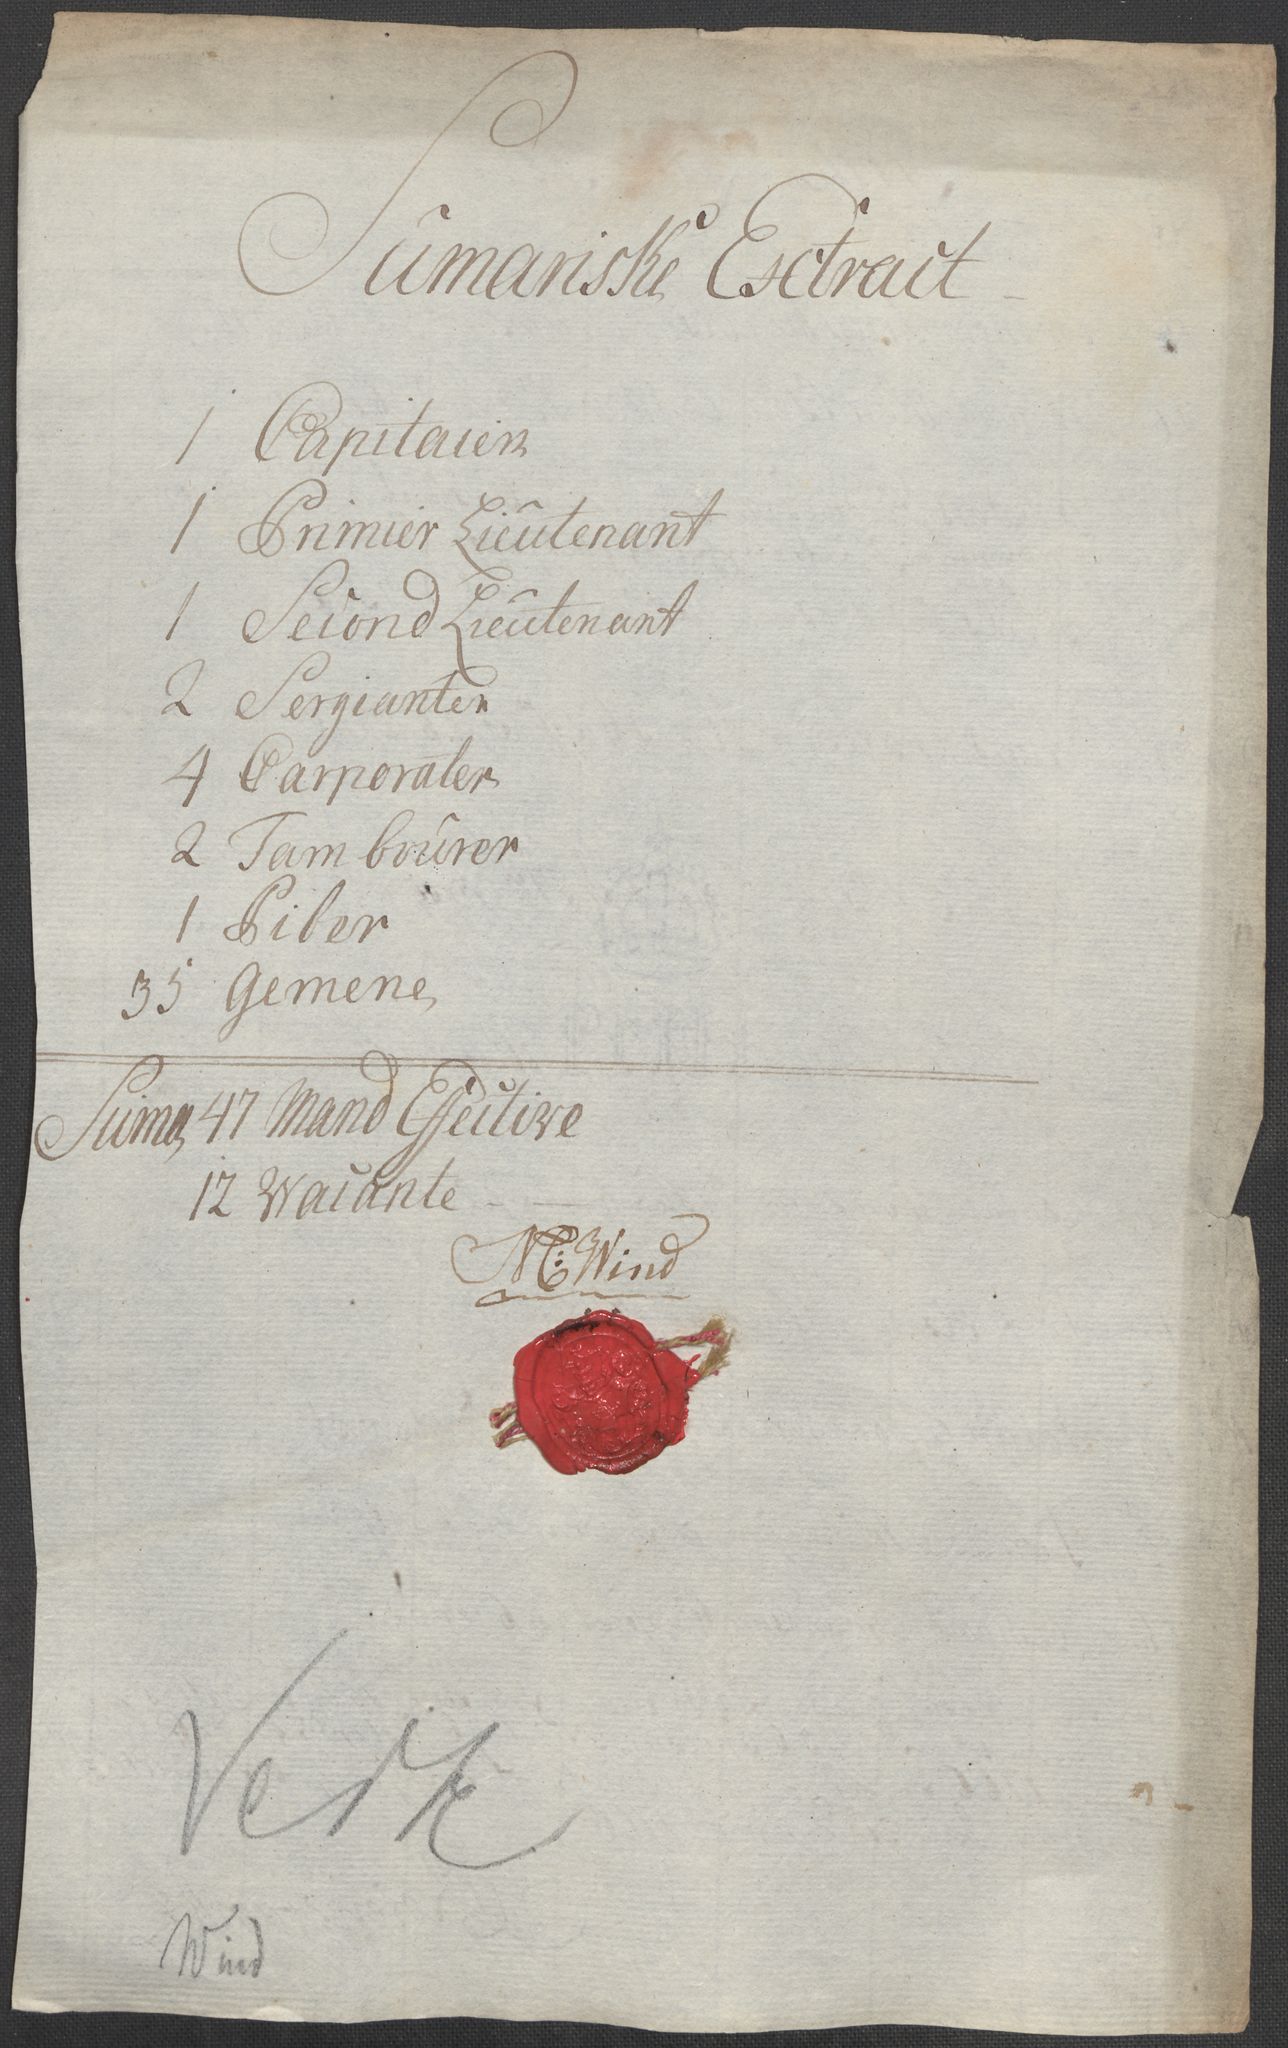 Sumariske Esctract
1 Capitaien
1 Primier Lieutenant
1 Second Lieutenant
2 Sergianter
4 Carporaler
2 Tambourer
1 Piber
35 Gemene
Suma 47 Mand Effective
12 Wacante
M: Wind
Wind